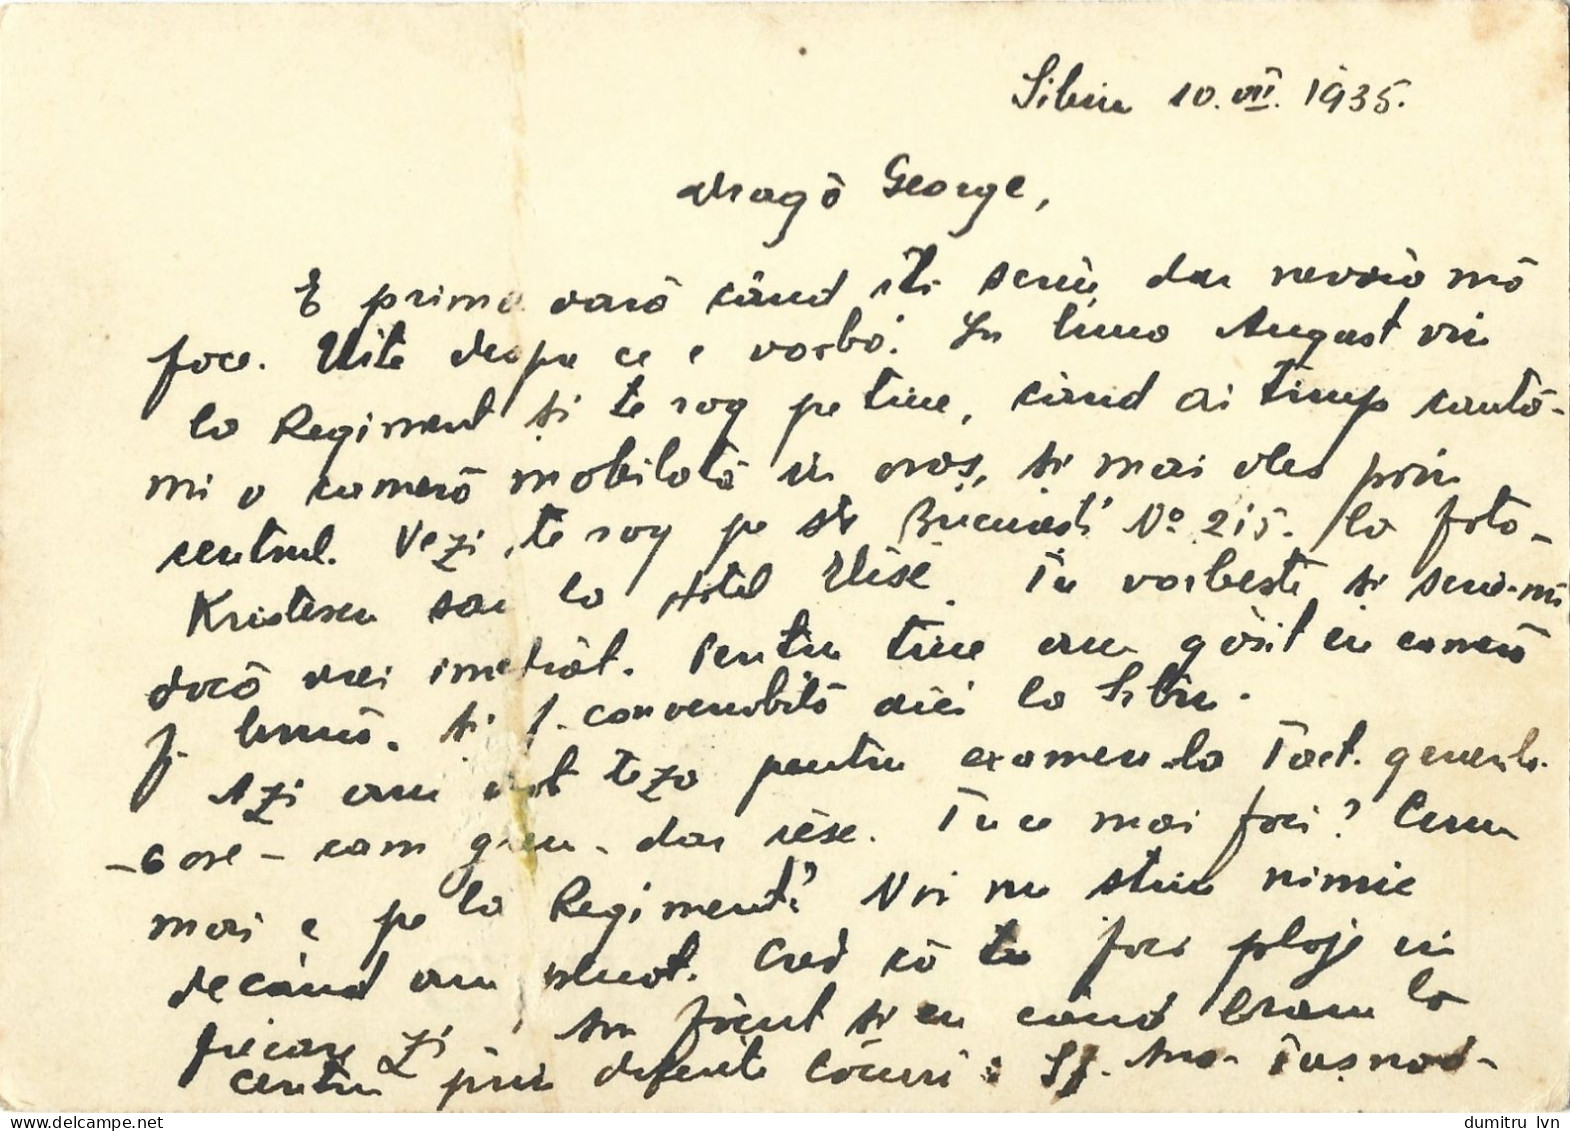 Sibiu 10.VII.1935.
Dragă George,
E prima oară când îți scriu, dar nevoia mă
face. Uite despre ce e vorba. În luna August vin
la Regiment și te rog pe tine, când ai timp caută-
mi o cameră mobilată în oraș, și mai ales prin
centrul. Vezi, te rog pe str București No 215. la foto-
Kristescu sau la Hotel Vese. Tu vorbești și scrie-mi
dacă vrei imediat. Pentru tine am găsit eu cameră
f. bună. și f. convenabilă aici la Sibiu.
Azi am avut teza pentru examen la Tact. generală.
-6 ore - cam greu - dar iese. Tu ce mai faci? Cum
mai e pe la Regiment? Noi nu știm nimic
decând am plecat. Cred că tu faci plaje în
fiecare zi, am făcut și eu când eram la
centru prin diferite locuri: Sf. Ana Tușnad-
dumitru lvn